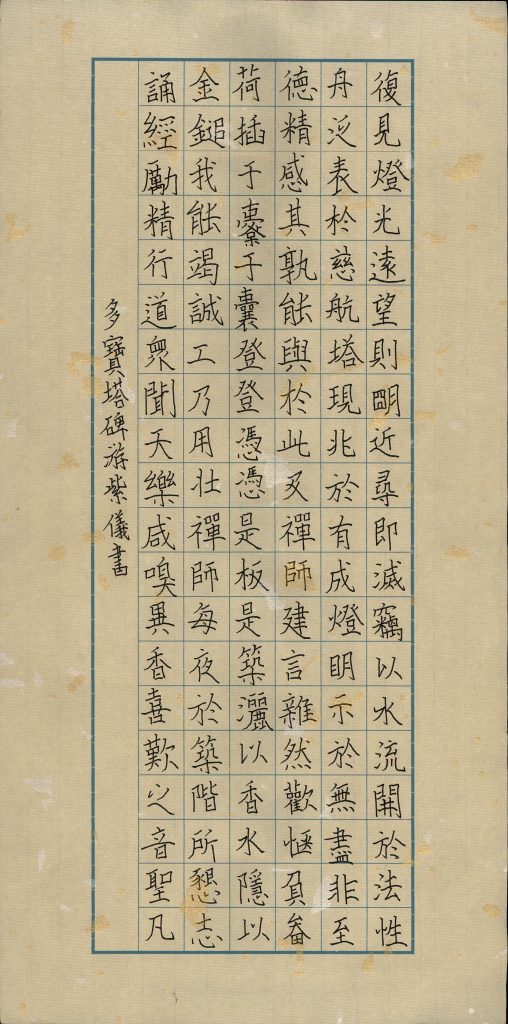 復見燈光遠望則明近尋即滅竊以水流開於法性
舟泛表於慈航塔現兆於有成燈明示於無盡非至
德精感其孰能與於此及禪師建言雜然歡愜負畚
荷插于橐于囊登登憑憑是板是築灑以香水隱以
金鎚我能竭誠工乃用壯禪師每夜於築階所懇志
誦經勵精行道眾聞天樂咸嗅異香喜歎之音聖凡
多寶塔碑游紫儀書